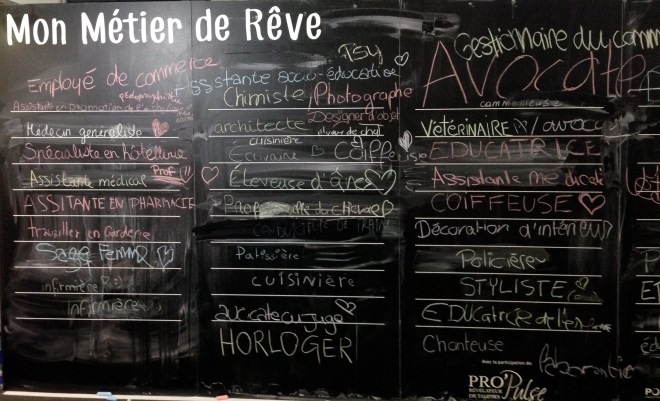 Mon Métier de Rêve
Employé de commerce
Assistante en Promotion de
Médecin généraliste
Spécialiste en hôtellerie
Assistante médical Prof !!
ASSITANTE EN PHARMACIE
travailler en Garderie
Sage Femme
infirmière
infirmière
Psy
Assistante socio-éducative
Chimiste Photographe
architecte Designer d'objet
cuisinière
Écrivaine Coiffeuse
Éleveuse d'ânes
CONDUCTEUR DE TRAIN
Patissière
cuisinière
avocate ou juge
HORLOGER
Gestionnaire du comm
AVOCATE
VETÉRINAIRE / avocate
EDUCATRICE
Assistante médicale
COIFFEUSE
Décoration d'intérieur
Policière
STYLISTE
Educatrice de
Chanteuse
Avec la participation de
laborantine
PRO'Pulse
RÉVÉLATEUR
DE TALENTS